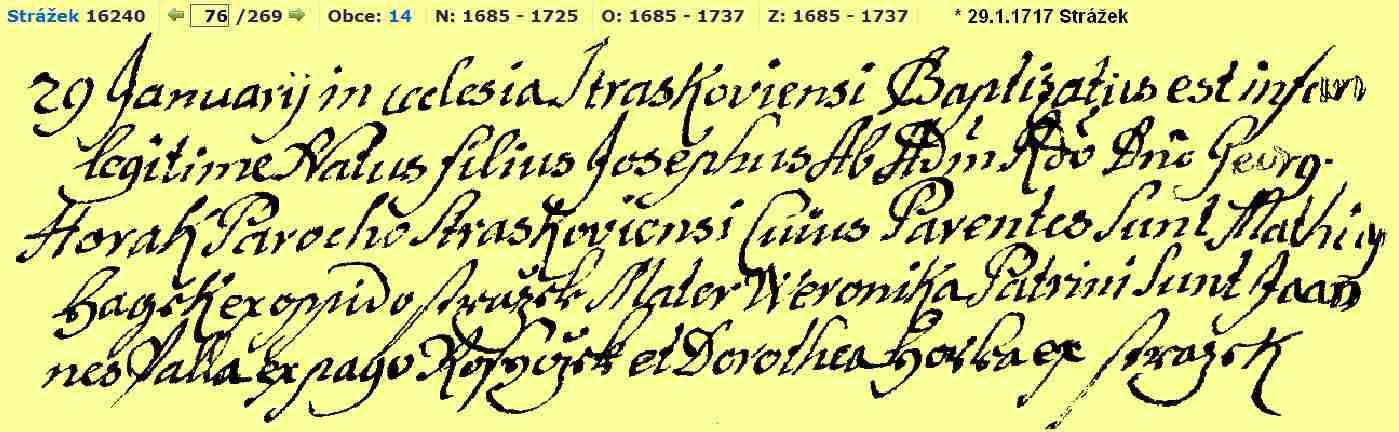 Strážek 16240 76 /269 Obce: 14 N: 1685 - 1725 O: 1685 - 1737 Z: 1685 - 1737 * 29.1.1717 Strážek
29 Januarij in ecclesia Straskoviensi Baptizatus est infan
legitime Natus filius Josephus Ab Adm Rdo Dno Georg.
Horak Parocho Straskoviensi Cuius Parentes sunt Mathiq
Hagek ex oppido strazek Mater Weronika Patrini sunt Joan
nes Palla ex pago et Dorothea ex strazek